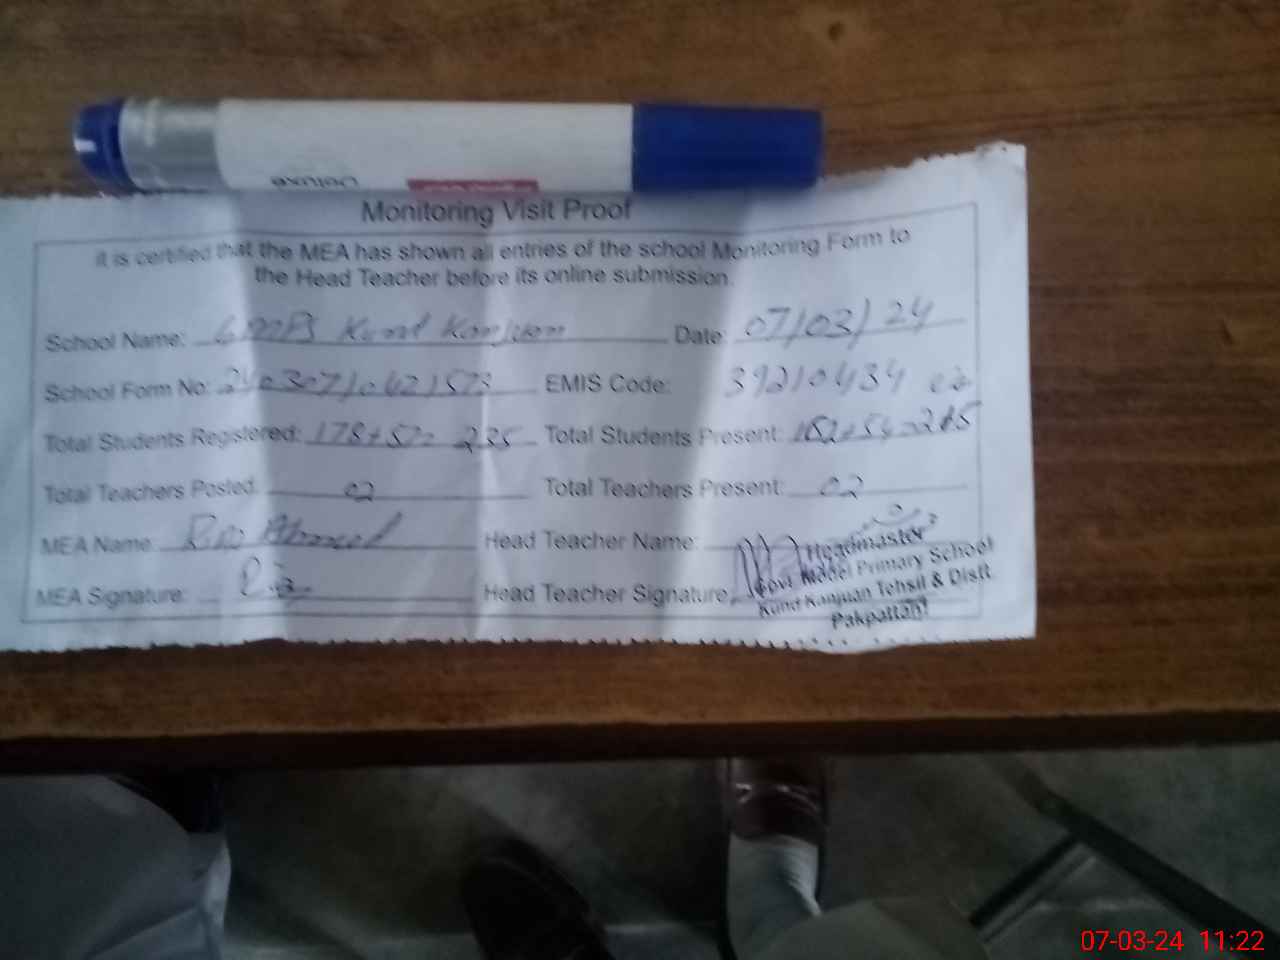 Monitoring Visit Proof
it is certified that the MEA has shown all entries of the school Monitoring Form to
the Head Teacher before its online submission.
School Name: GMPS Kund Kanjuan Date: 07/03/24
School Form No: EMIS Code: 39210434
Total Students Registered: 178+57= 235 Total Students Present:
Total Teachers Posted: 02 Total Teachers Present: 02
MEA Name: Ahmed Head Teacher Name:
MEA Signature: Head Teacher Signature:
Headmaster
Govt Model Primary School
Kund Kanjuan Tehsil & Distt.
Pakpattan
07-03-24 11:22